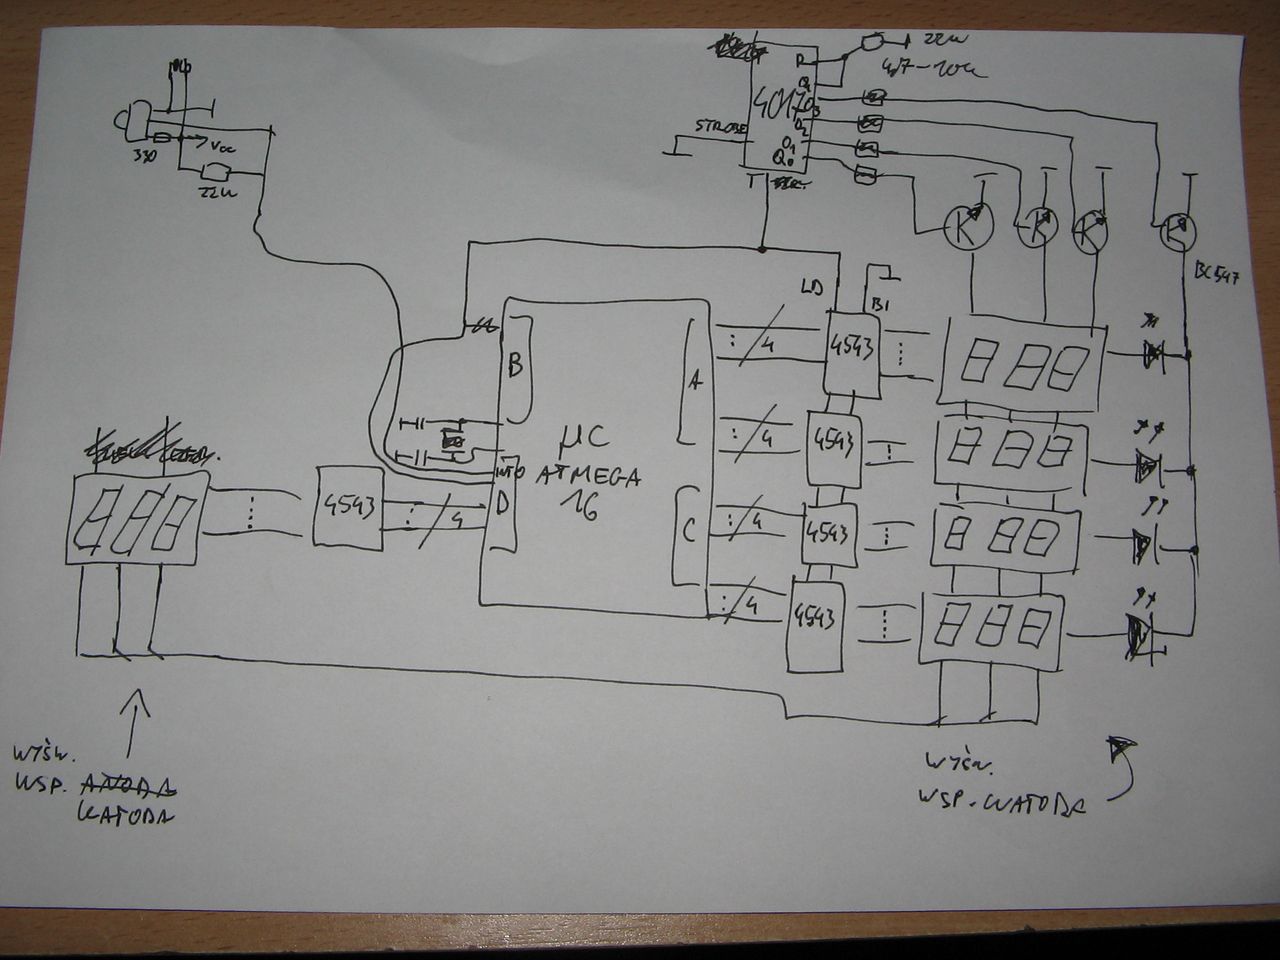 22k
4,7-10k
R
Q4
4017
Q3
Q2
Q1
Q0
STROBE
330
VCC
22k
BC547
LD
B1
B
A
4
4543
4
4543
µC
ATMEGA
16
INT0
D
C
4
4543
4
4543
4543
4
WYŚW.
WSP. ANODA
KATODA
WYŚW.
WSP. KATODA